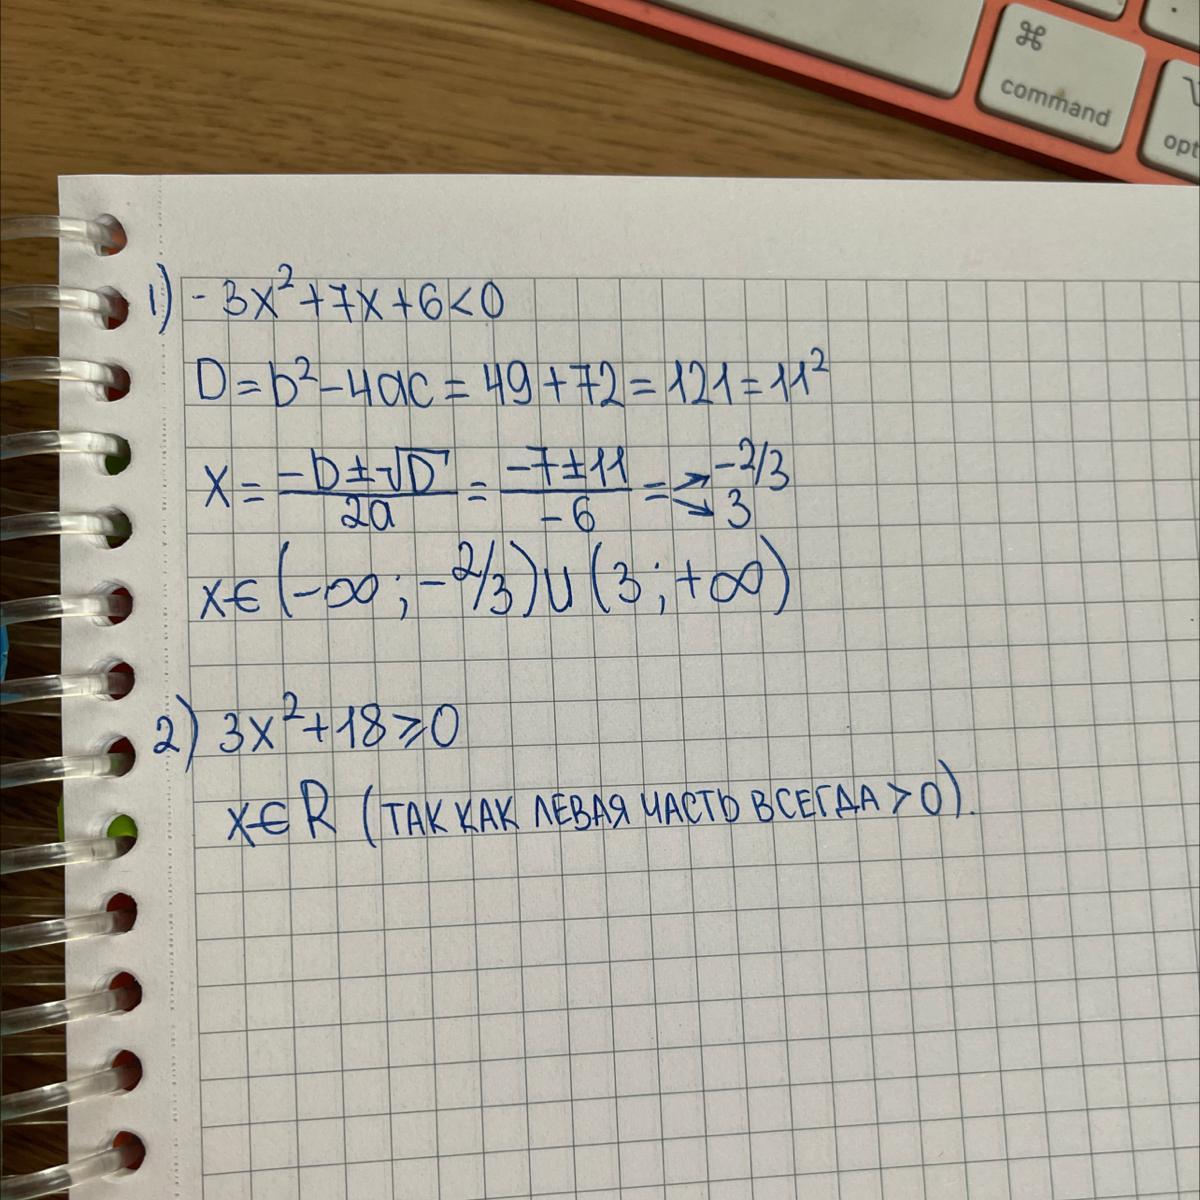 ⌘
command
opt
1) -3x²+7x+6<0
D=b²-4ac=49+72=121=11²
x= (-b±√D)/(2a) = (-7±11)/(-6) = -2/3
3
x∈(-∞;-2/3)∪(3;+∞)
2) 3x²+18⩾0
x∈R (ТАК КАК ЛЕВАЯ ЧАСТЬ ВСЕГДА > 0).